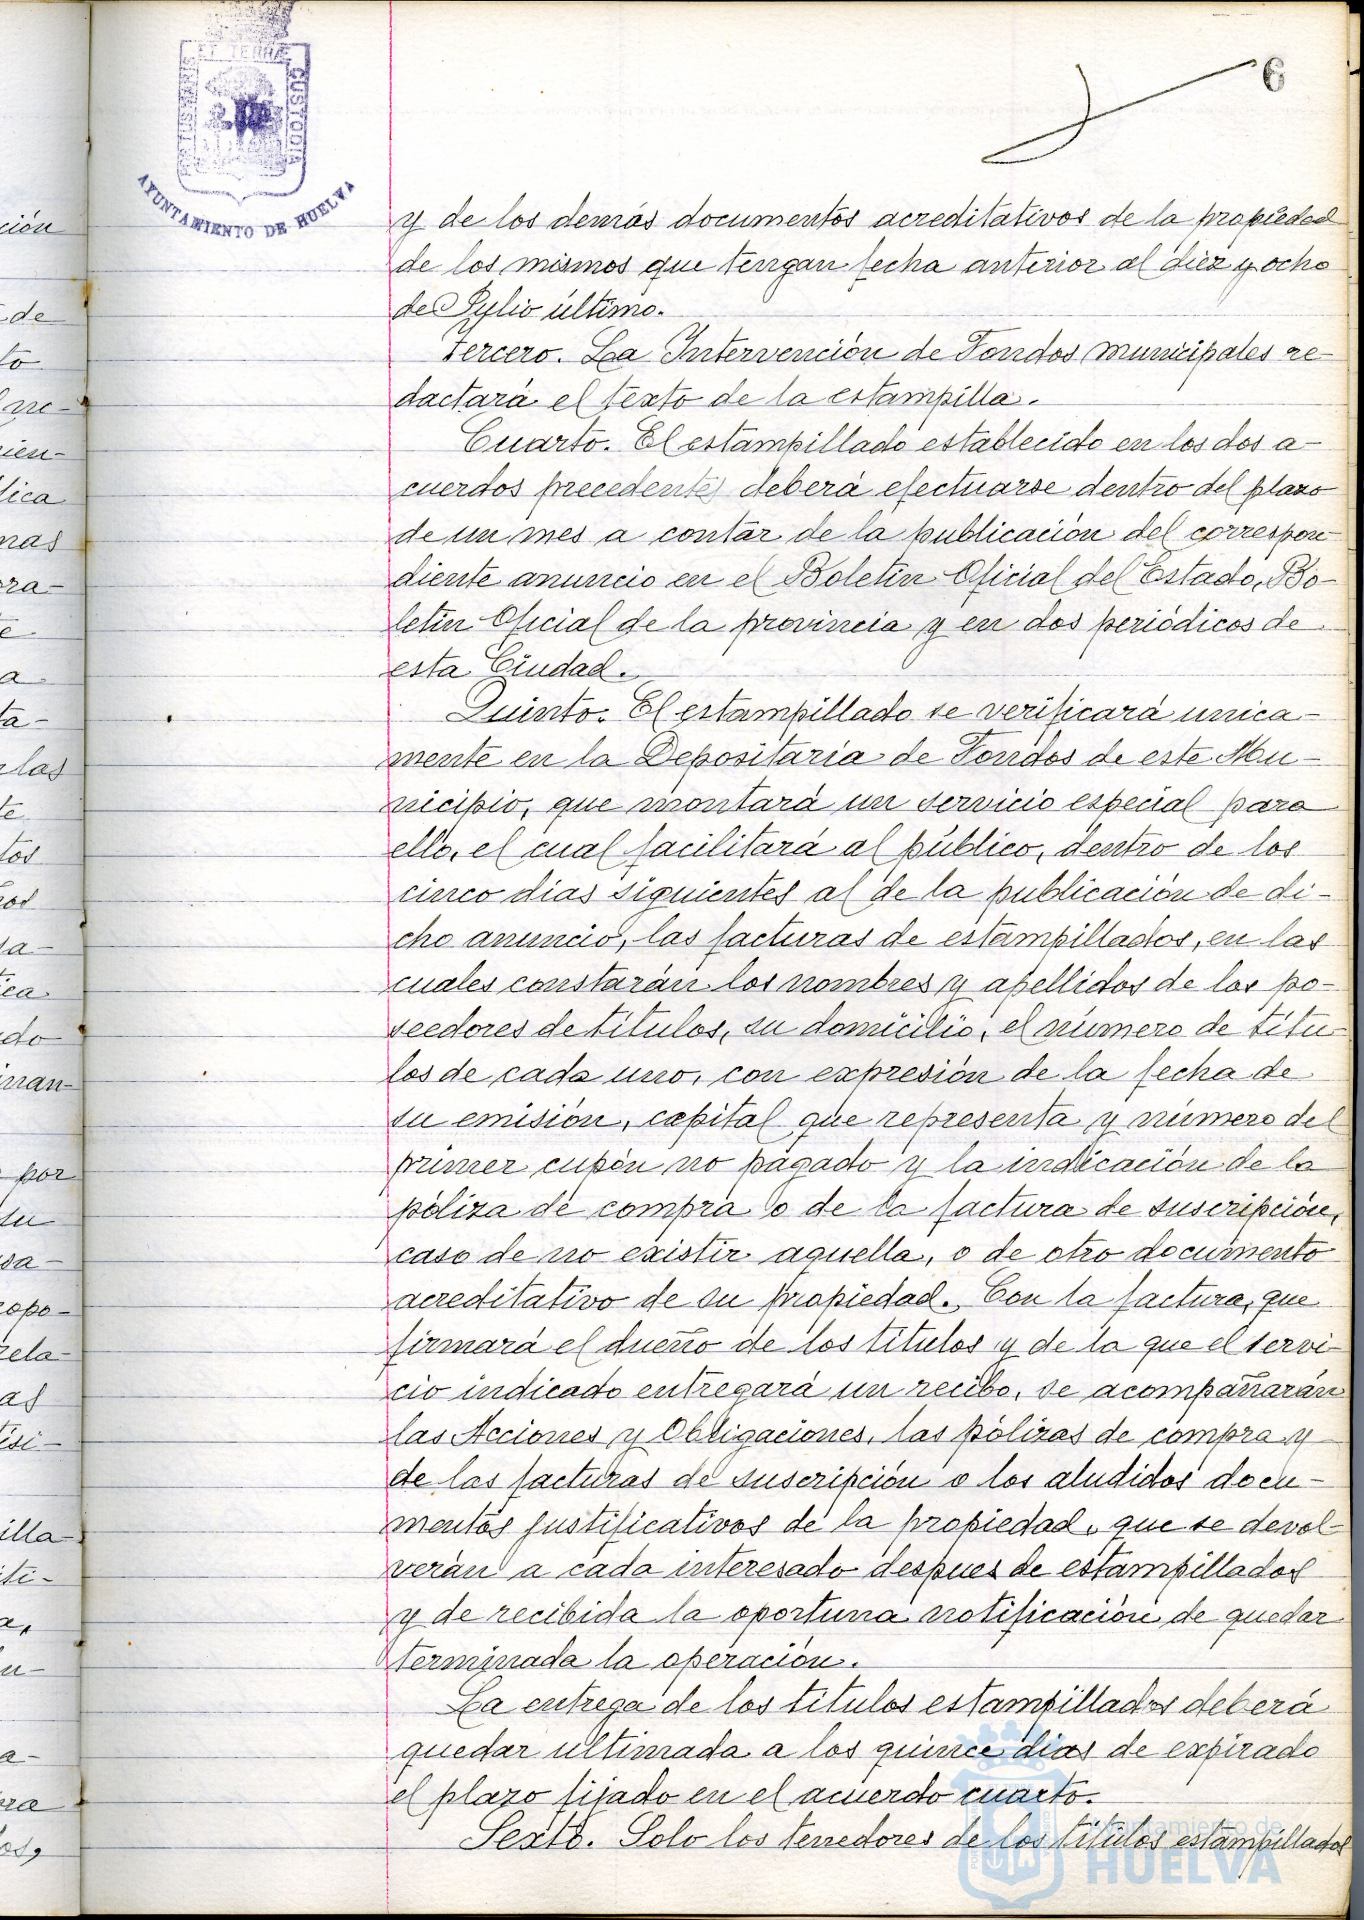 6
PORTUS MARIS ET TERRÆ CUSTODIA
AYUNTAMIENTO DE HUELVA
y de los demás documentos acreditativos de la propiedad
de los mismos que tengan fecha anterior al diez y ocho
de Julio último.
Tercero. La Intervención de Fondos municipales re-
dactará el texto de la estampilla.
Cuarto. El estampillado establecido en los dos a-
cuerdos precedentes deberá efectuarse dentro del plazo
de un mes a contar de la publicación del correspon-
diente anuncio en el Boletín Oficial del Estado, Bo-
letín Oficial de la provincia y en dos periódicos de
esta Ciudad.
Quinto. El estampillado se verificará unica-
mente en la Depositaría de Fondos de este Mu-
nicipio, que montará un servicio especial para
ello, el cual facilitará al público, dentro de los
cinco dias siguientes al de la publicación de di-
cho anuncio, las facturas de estampillados, en las
cuales constarán los nombres y apellidos de los po-
seedores de títulos, su domicilio, el número de títu-
los de cada uno, con expresión de la fecha de
su emisión, capital que representa y número del
primer cupón no pagado y la indicación de la
póliza de compra o de la factura de suscripción,
caso de no existir aquella, o de otro documento
acreditativo de su propiedad. Con la factura, que
firmará el dueño de los títulos y de la que el servi-
cio indicado entregará un recibo, se acompañarán
las Acciones y Obligaciones, las pólizas de compra y
de las facturas de suscripción o los aludidos docu-
mentos justificativos de la propiedad, que se devol-
verán a cada interesado despues de estampillados
y de recibida la oportuna notificación de quedar
terminada la operación.
La entrega de los títulos estampillados deberá
quedar ultimada a los quince dias de expirado
el plazo fijado en el acuerdo cuarto.
Sexto. Solo los tenedores de los títulos estampillados
Ayuntamiento de
HUELVA
ción
de
to
ne-
cien-
lica
nas
ora-
te
a
ta-
las
te
tos
nos
sa-
ica
do
inan-
por
su
sa-
ropo-
rela-
as
isi-
illa-
iti-
a,
u-
a-
ra
os,